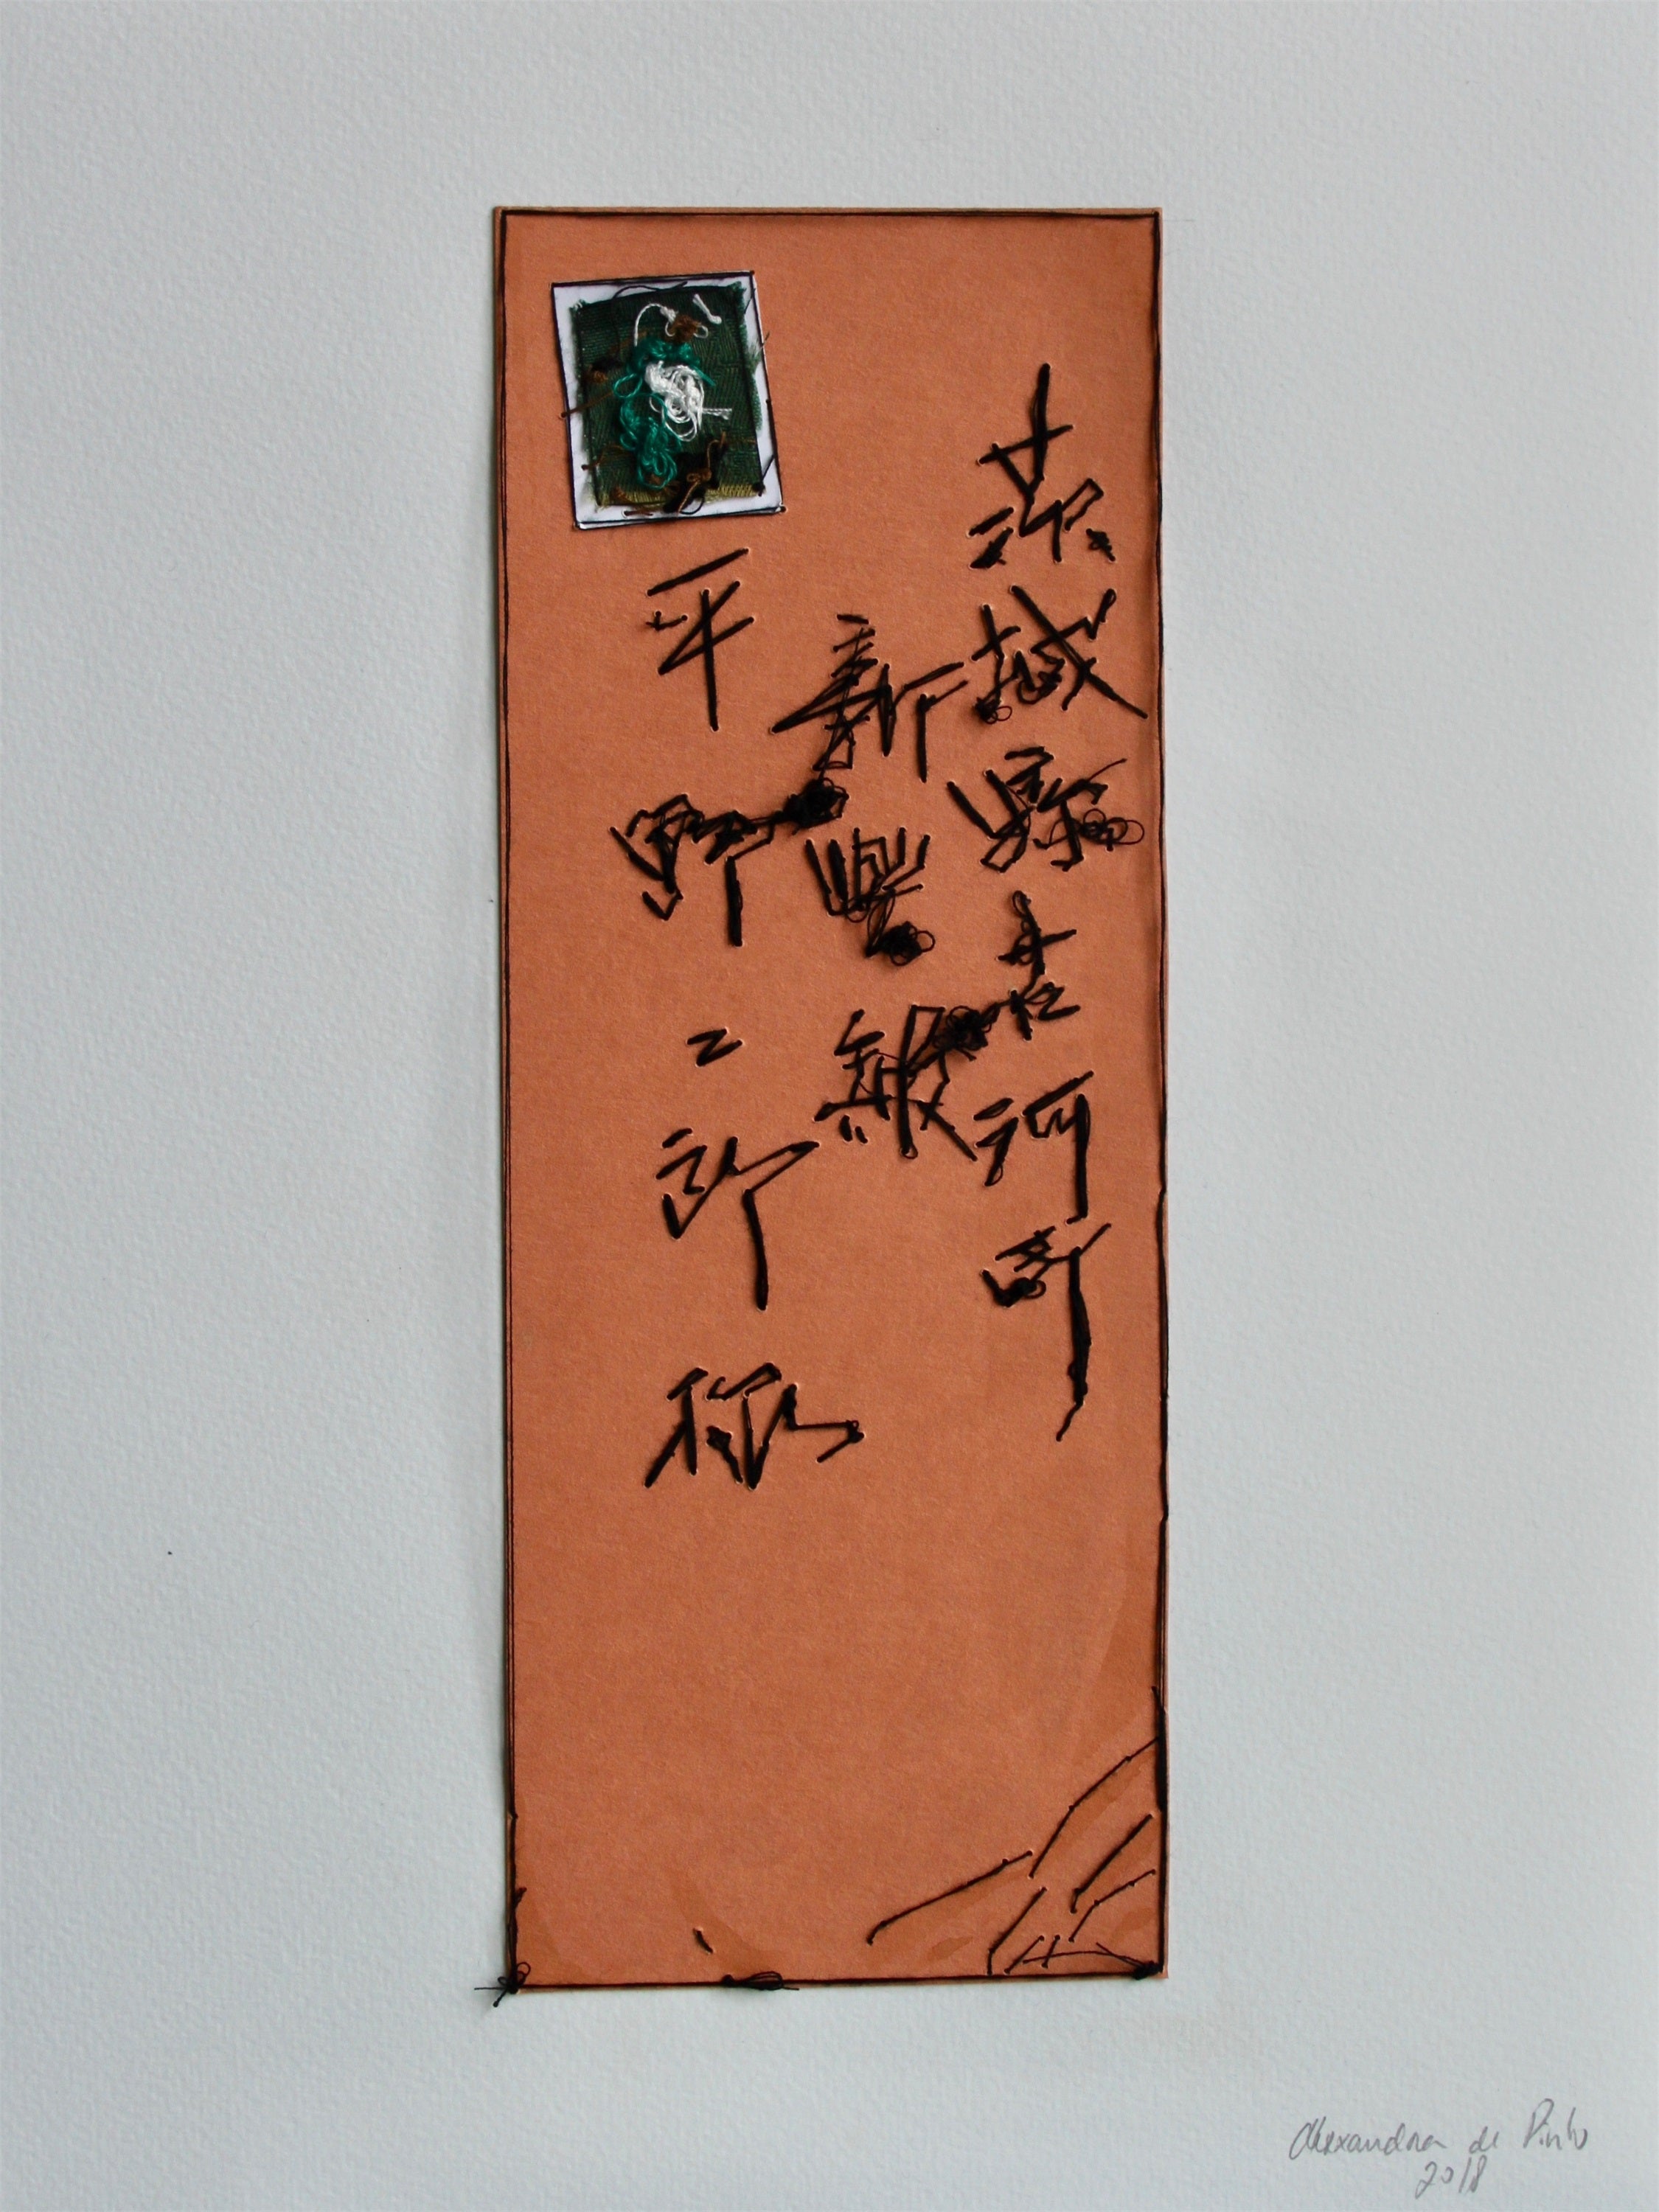 茨城縣 河町
新
平野二郎様
Alexandra de Pinho
2018